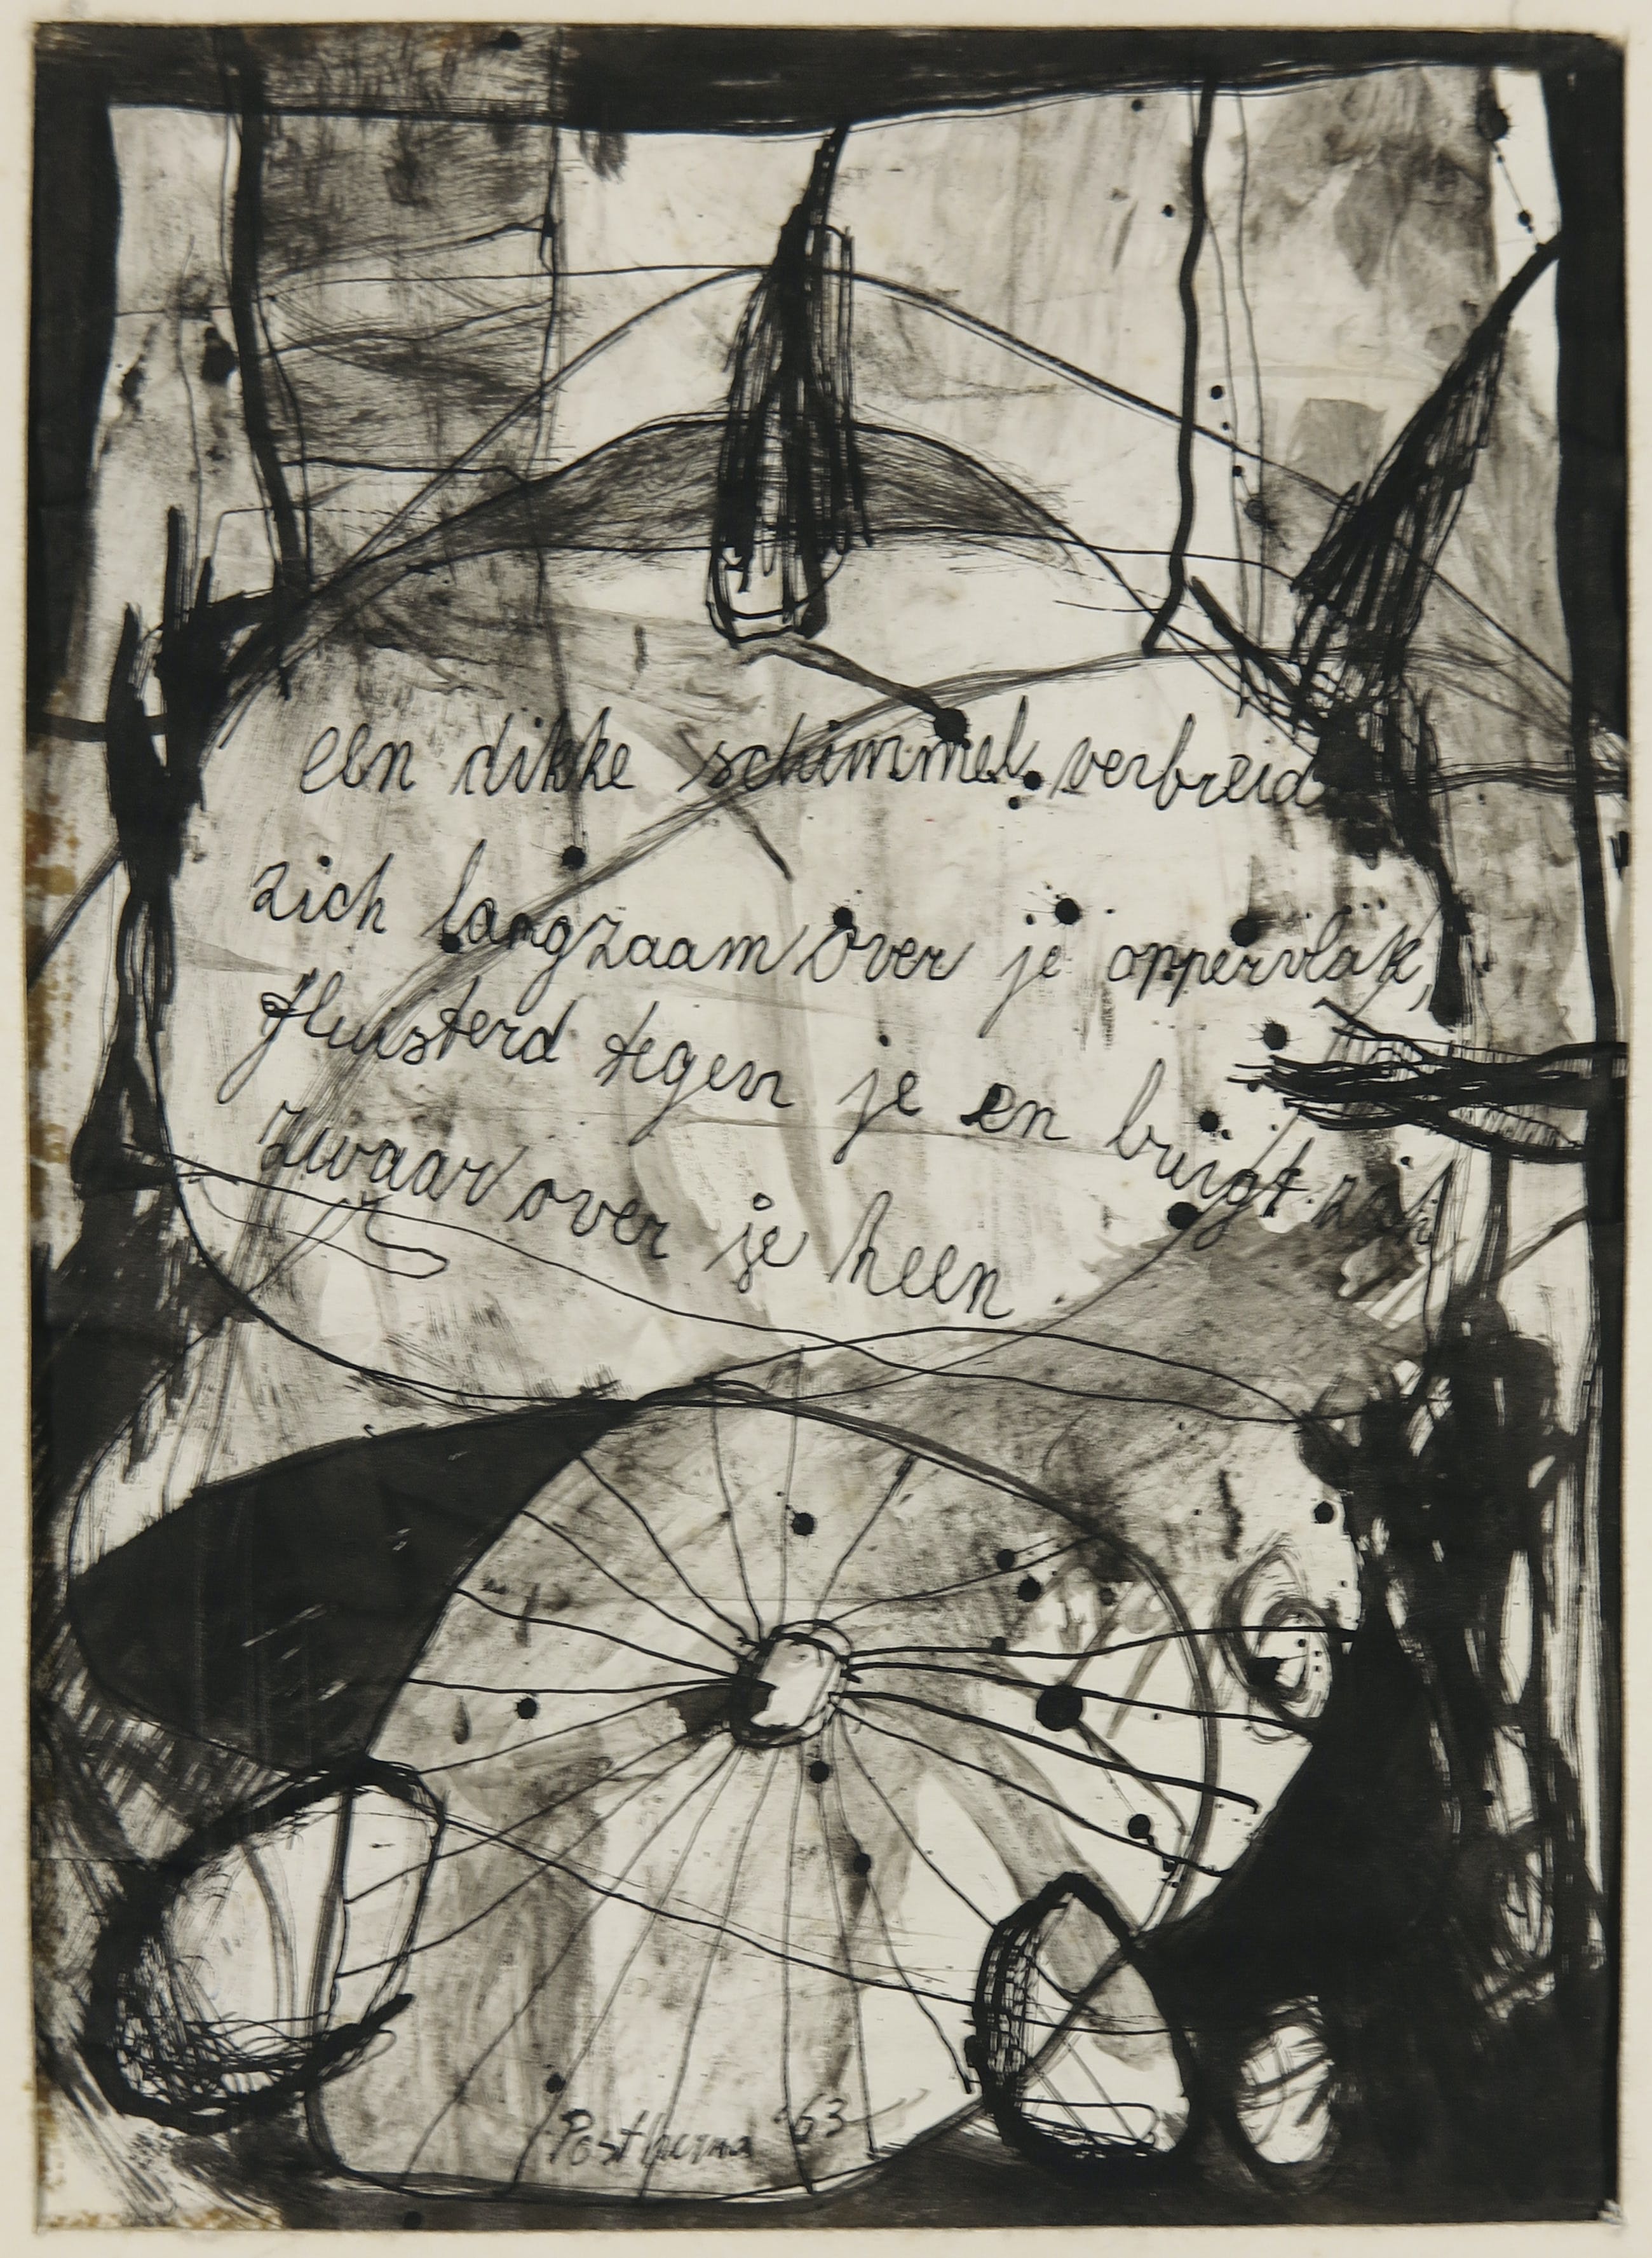 een dikke schimmel verbreid
zich langzaam over je oppervlak,
fluisterd tegen je en buigt zich
zwaar over je heen
Posthuma '63